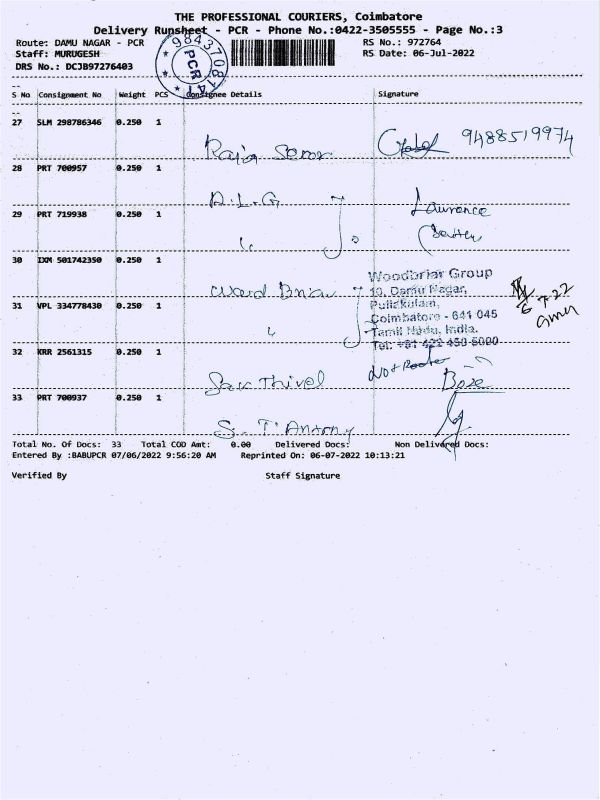 THE PROFESSIONAL COURIERS, Coimbatore
Delivery Runsheet - PCR - Phone No.:0422-3505555 - Page No.:3
Route: DAMU NAGAR - PCR
Staff: MURUGESH
DRS No.: DCJB97276403
RS No.: 972764
RS Date: 06-Jul-2022
PCR
S No Consignment No Weight PCS Consignee Details Signature
27 SLM 298786346 0.250 1
9488519974
28 PRT 700957 0.250 1
D.L.G Lawrence
29 PRT 719938 0.250 1
30 IXM 501742350 0.250 1
Woodbriar Group
10, Damu Nagar,
Puliakulam,
Coimbatore - 641 045
Tamil Nadu, India.
Tel: +91 422 450 5000
31 VPL 334778430 0.250 1
32 KRR 2561315 0.250 1
Bose
33 PRT 700937 0.250 1
S. T. Antony
Total No. Of Docs: 33 Total COD Amt: 0.00 Delivered Docs: Non Delivered Docs:
Entered By :BABUPCR 07/06/2022 9:56:20 AM Reprinted On: 06-07-2022 10:13:21
Verified By Staff Signature